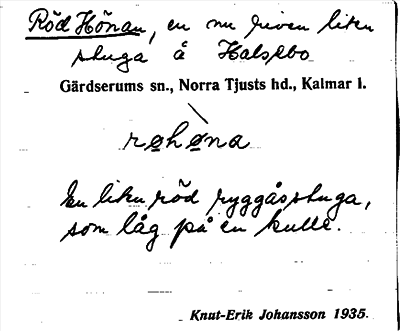 Röd Hönan, en nu riven liten
stuga å Halsebo
Gärdserums sn., Norra Tjusts hd., Kalmar l.
røhøna
En liten röd ryggåsstuga,
som låg på en kulle.
Knut-Erik Johansson 1935.